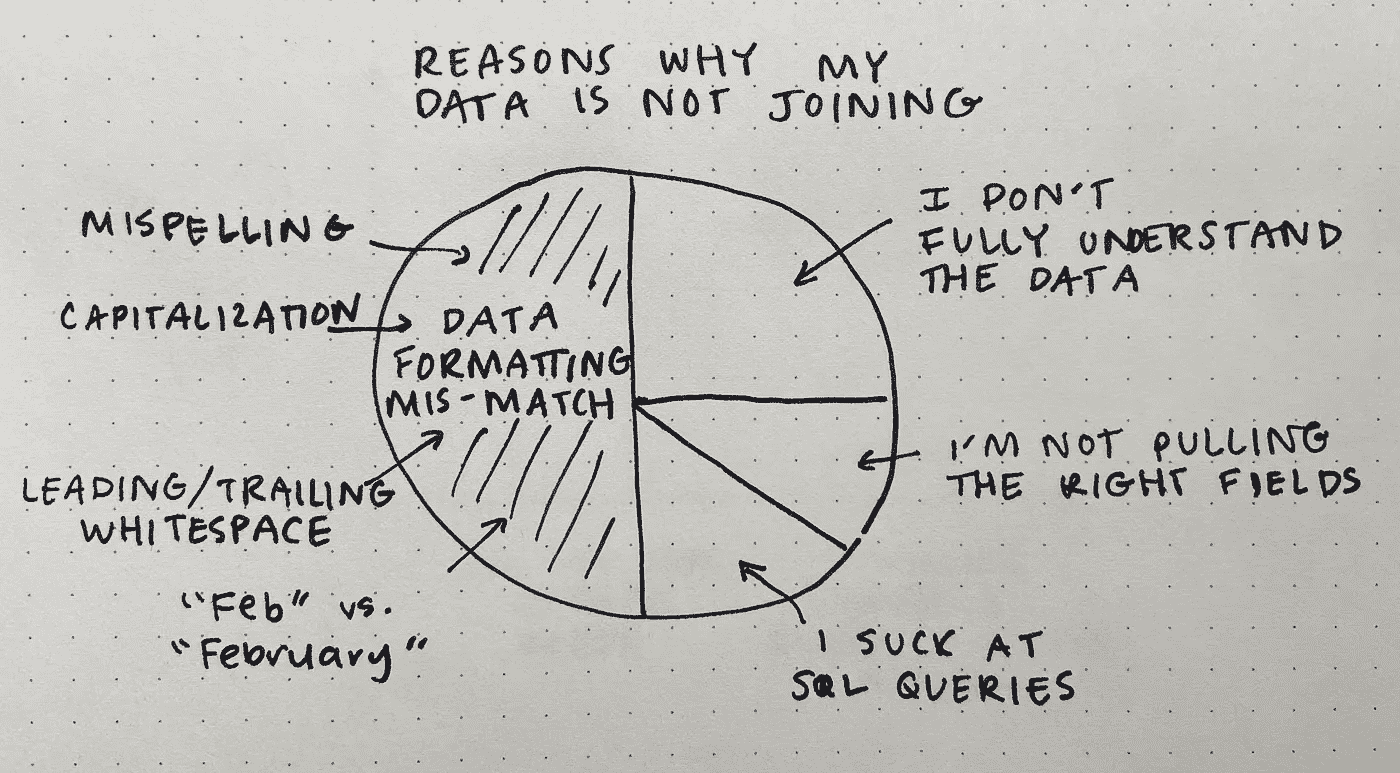 REASONS WHY MY
DATA IS NOT JOINING
MISPELLING
CAPITALIZATION
DATA
FORMATTING
MIS-MATCH
LEADING/TRAILING
WHITESPACE
"Feb" vs.
"February"
I DON'T
FULLY UNDERSTAND
THE DATA
I'M NOT PULLING
THE RIGHT FIELDS
I SUCK AT
SQL QUERIES